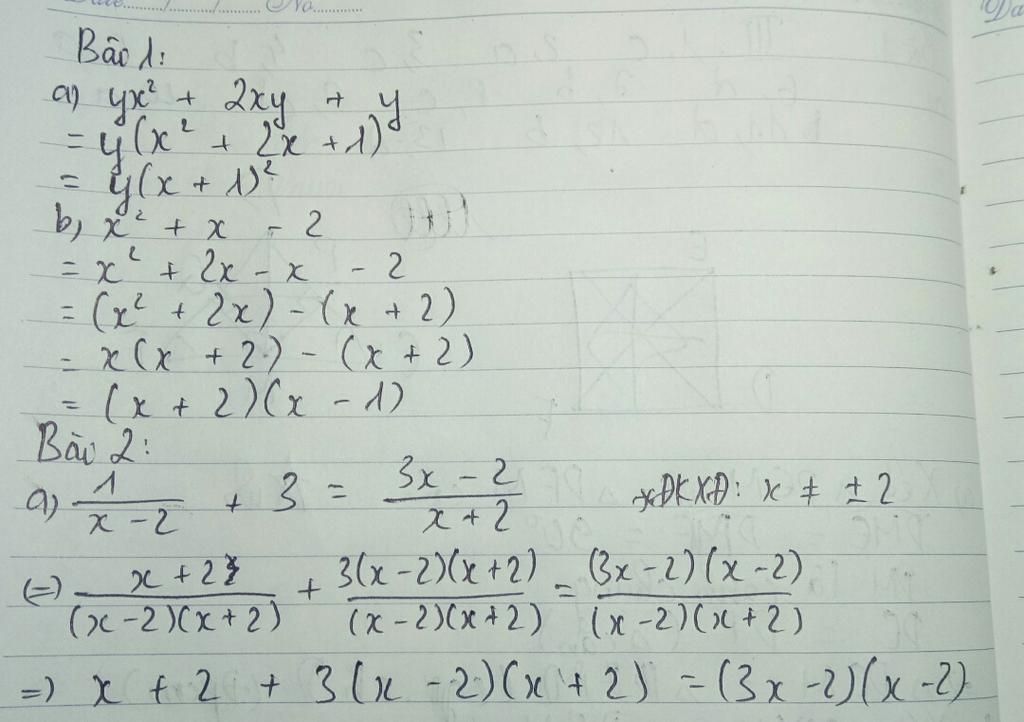 Date...../...../..... No.........
Bài 1:
a) yx² + 2xy + y
= y(x² + 2x + 1)
= y(x + 1)²
b, x² + x - 2
= x² + 2x - x - 2
= (x² + 2x) - (x + 2)
= x(x + 2) - (x + 2)
= (x + 2)(x - 1)
Bài 2:
a) 1/(x - 2) + 3 = (3x - 2)/(x + 2) *ĐKXĐ: x ≠ ± 2
(=) (x + 2)/((x - 2)(x + 2)) + 3(x - 2)(x + 2)/((x - 2)(x + 2)) = (3x - 2)(x - 2)/((x - 2)(x + 2))
=) x + 2 + 3(x - 2)(x + 2) = (3x - 2)(x - 2)